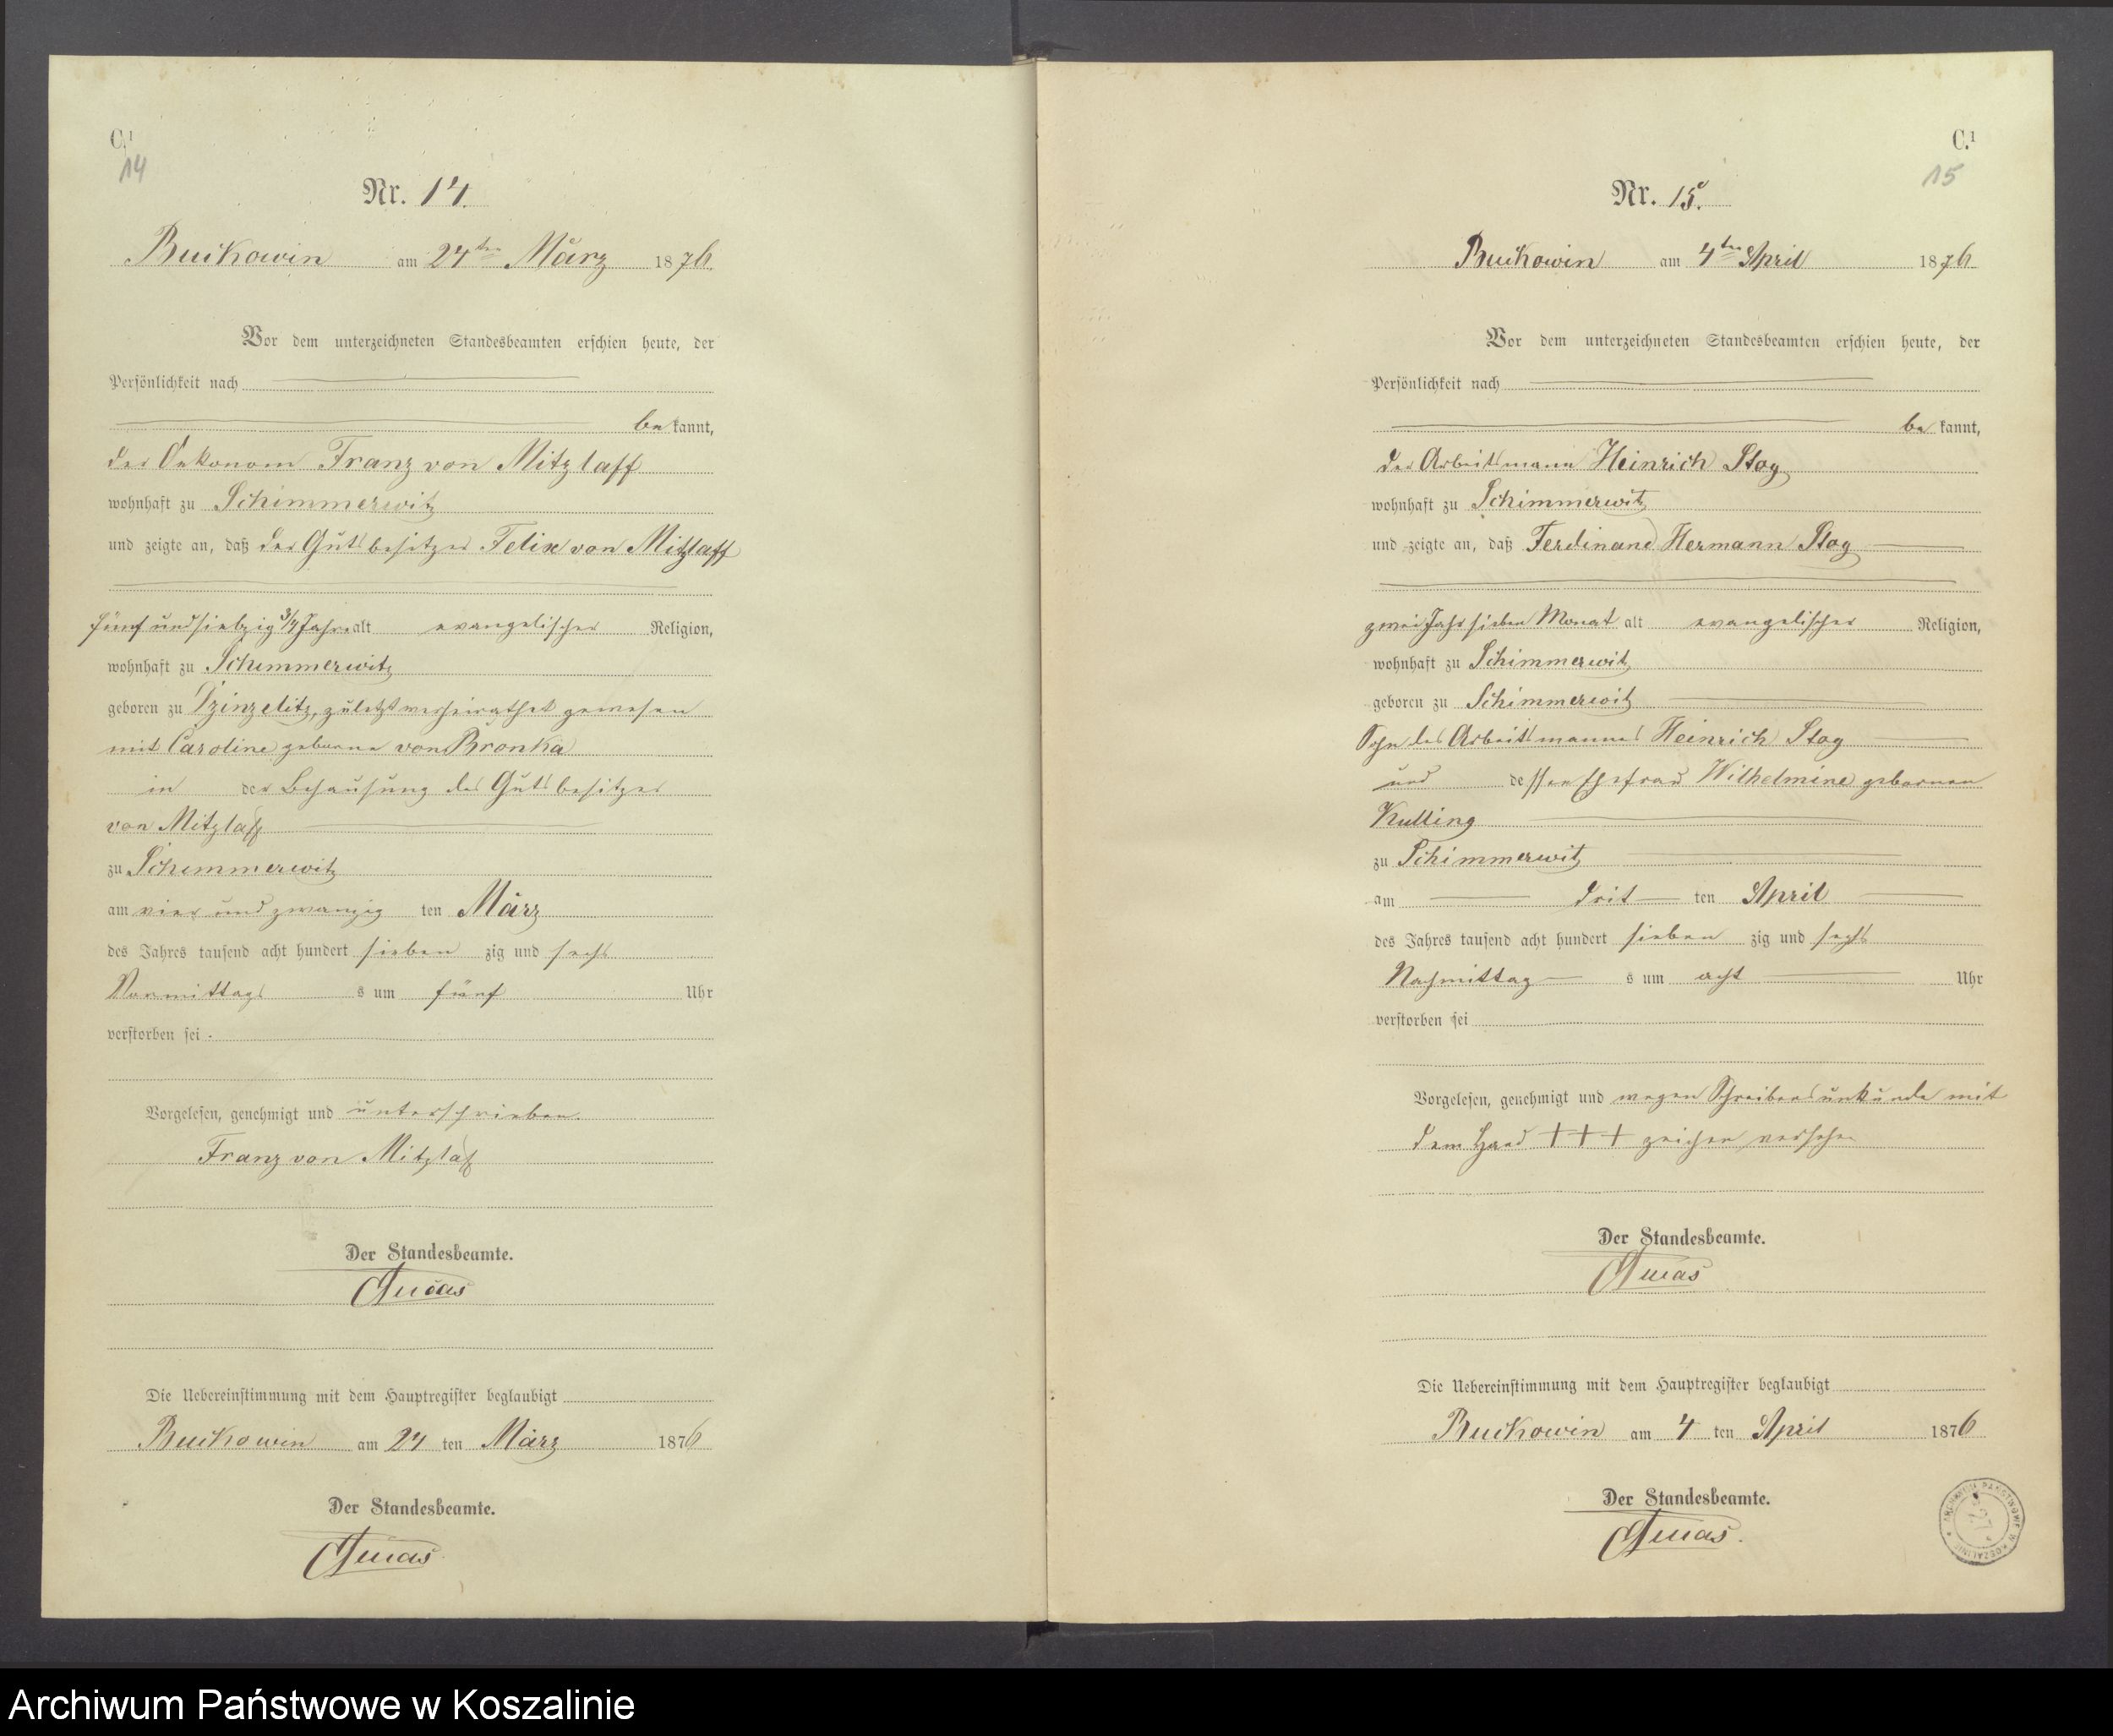 C.1
14
Nr. 14.
Buckowin am 24ten März 1876.
Vor dem unterzeichneten Standesbeamten erschien heute, der
Persönlichkeit nach
be kannt,
der Oekonom Franz von Mitzlaff
wohnhaft zu Schimmerwitz
und zeigte an, daß der Gutsbesitzer Felix von Mitzlaff
fünf und siebzig 3/4 Jahre alt evangelischer Religion,
wohnhaft zu Schimmerwitz
geboren zu Dzinzelitz, zuletzt verheirathet gewesen
mit Caroline geborne von Bronka
in der Behausung des Gutsbesitzer
von Mitzlaff
zu Schimmerwitz
am vier und zwanzig ten März
des Jahres tausend acht hundert sieben zig und sechs
Vormittags s um fünf Uhr
verstorben sei.
Vorgelesen, genehmigt und unterschrieben.
Franz von Mitzlaff
Der Standesbeamte.
Die Uebereinstimmung mit dem Hauptregister beglaubigt
Buckowin am 24 ten März 1876
Der Standesbeamte.
C.1
15
Nr. 15.
Buckowin am 4ten April 1876
Vor dem unterzeichneten Standesbeamten erschien heute, der
Persönlichkeit nach
be kannt,
der Arbeitsmann Heinrich Stoy
wohnhaft zu Schimmerwitz
und zeigte an, daß Ferdinand Hermann Stoy
zwei Jahr sieben Monat alt evangelischer Religion,
wohnhaft zu Schimmerwitz
geboren zu Schimmerwitz
Sohn des Arbeitsmannes Heinrich Stoy
und dessen Ehefrau Wilhelmine gebornen
Kulling
zu Schimmerwitz
am drit ten April
des Jahres tausend acht hundert sieben zig und sechs
Nachmittag s um acht Uhr
verstorben sei
Vorgelesen, genehmigt und wegen Schreibensunkunde mit
dem Hand +++ zeichen versehen
Der Standesbeamte.
Die Uebereinstimmung mit dem Hauptregister beglaubigt
Buckowin am 4 ten April 1876
Der Standesbeamte.
ARCHIWUM PAŃSTWOWE W KOSZALINIE
Archiwum Państwowe w Koszalinie